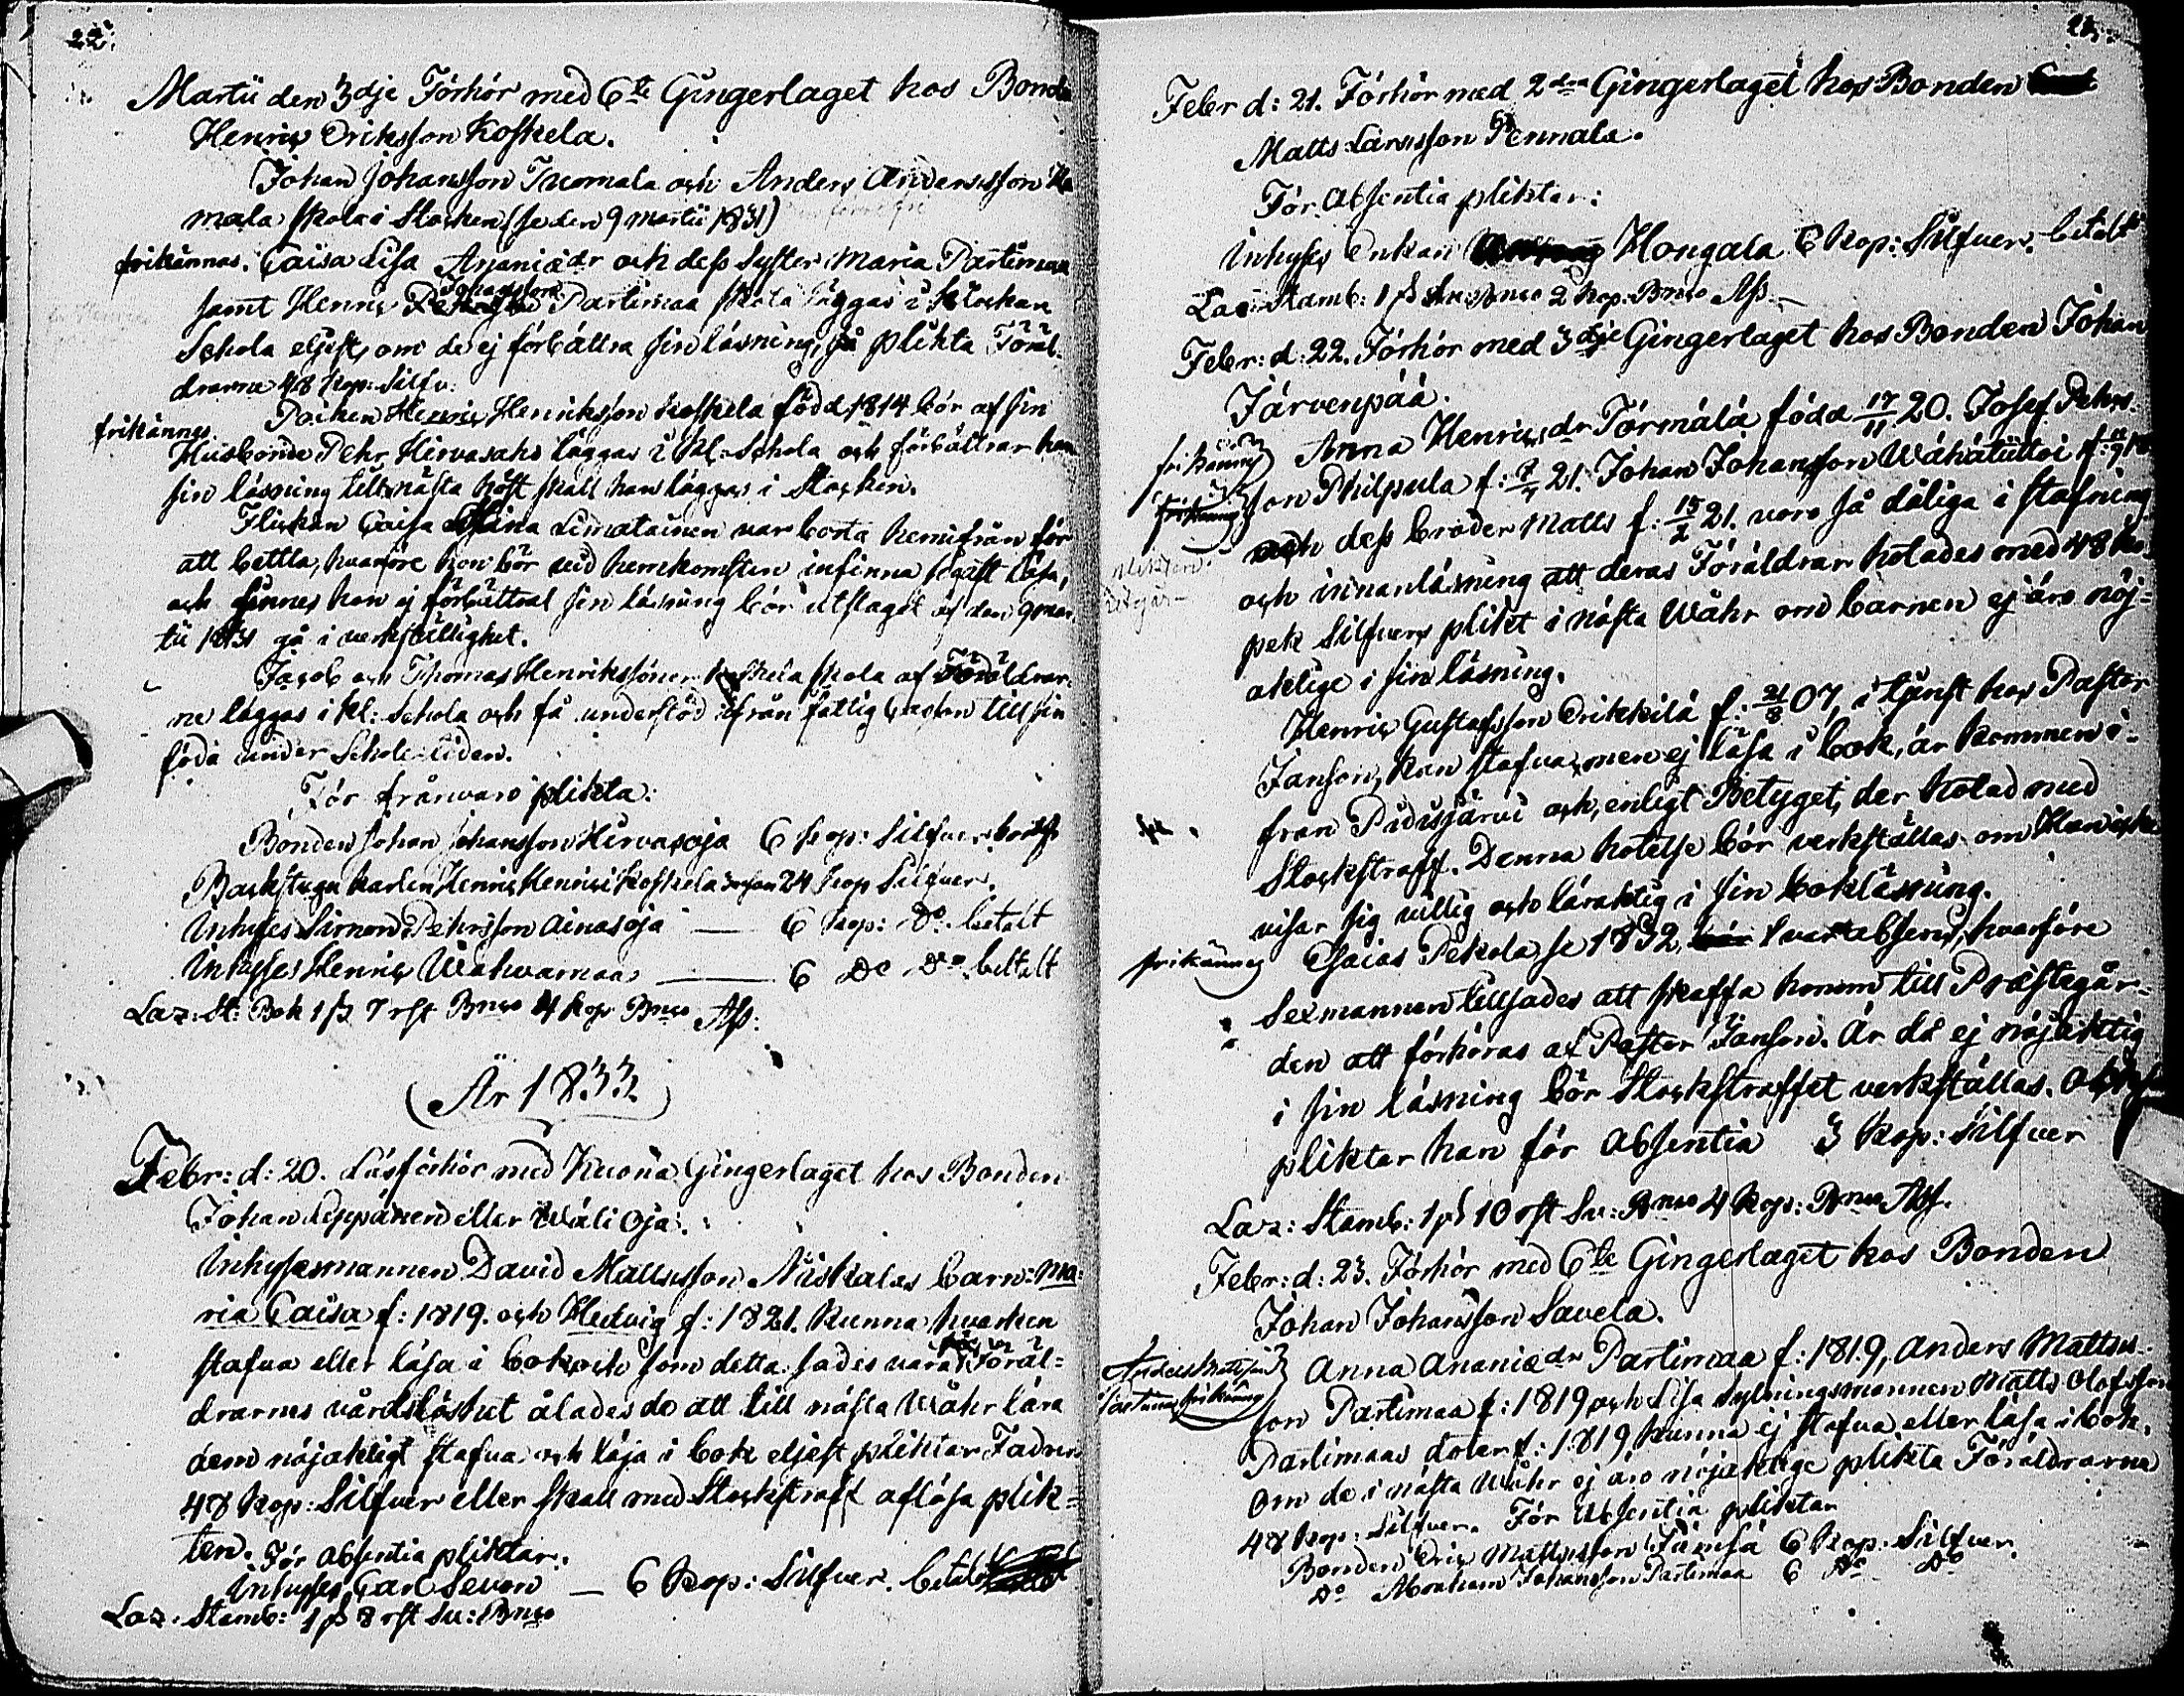 22.
Martii den 3dje Förhör med 6te Gingerlaget hos Bonden
Henric Eriksson Koskela.
Johan Johansson Tuomala och Anders Andersson
mala skola i Stocken (se den 9 Martii 1831)
frikännas. Caisa Lisa Ananiædr och dess Syster Maria Partimaa
samt Henric Johansson Partimaa skola läggas i Klockare
Schola eljest, om de ej förbättra sin läsning, så plikta Föräl-
drarne 48 kop: Silfv:
frikännes Poiken Henric Henriksson Koskela född 1814 bör af sin
Husbonde Pehr Hirvasaho läggas i Kl: Schola och förbättrar han
sin läsning till nästa höst skall han läggas i Stocken.
Flickan Caisa Stina Limatainen var borta hemifrån för
att bettla, hvarföre hon bör vid hemkomsten infinna sig att läsa,
och finnes hon ej förbättrat sin läsning bör utslaget af den 9 Mar-
tii 1831 gå i verkställighet.
Jacob och Thomas Henrikssöner Koskela skola af Föräldrar-
ne läggas i Kl: Schola och få understöd ifrån fattig Cassan till sin
föda under Schole tiden.
För frånvaro plikta:
Bonden Johan Johansson Hirvasoja 6 kop: Silfver
Backstugu karlen Henric Henrici Koskela 24 kop Silfver.
Inhyses Simon Pehrsson Ainasoja — 6 kop: Do. betalt
Inhyses Henric Wahvamaa — 6 Do Do. betalt
Laz: St: Bok 1 ß 7 rst Bnco 4 kop Bnco Ass:
(År 1833)
Febr: d: 20. Läsförhör med Kuona Gingerlaget hos Bonden
Johan Leppänen eller Wäli Oja.
Inhysesmannen David Mattsson Niskalas barn: Ma-
ria Caisa f: 1819. och Hedvig f: 1821. kunna hvarken
stafva eller läsa i bok och som detta sades vara Föräl-
drarnes vårdslöshet ålades de att till nästa Währ lära
dem nöjaktigt stafva och läsa i bok eljest pliktar Fadren
48 kop: Silfver eller skall med Stockstraff aflösa plik-
ten. För absentia pliktar.
Inhyses Carl Sevon — 6 kop: Silfver. betalt
Laz. Stamb: 1 ß 8 rst Sv: Bnco
23.
Febr d: 21. Förhör med 2dra Gingerlaget hos Bonden
Matts Larsson Pennala.
För Absentia pliktar:
Inhyses Enkan Hongala 6 kop: Silfver. betalt
Laz: Stamb: 1 ß Sv: Bnco 2 kop: Bnco Ass.
Febr: d: 22. Förhör med 3dje Gingerlaget hos Bonden Johan
Järvenpää.
frikännes Anna Henricsdr Törmälä född 17/11 20. Josef Pehrs-
frikännes son Philpula f: 21. Johan Johansson Wähätiitto f:
och dess broder Matts f: 15/2 21. voro så dåliga i stafning
och innanläsning att deras Föräldrar hotades med 48 ko-
pek Silfvers plikt i nästa Währ om barnen ej äro nöj-
aktige i sin läsning.
Henric Gustafsson Erikkilä f: 21/8 07, i tjenst hos Pastor
Janson, kan stafva, men ej läsa i bok, är kommen i-
från Pudasjärvi och, enligt Betyget, der hotad med
Stockstraff. Denna hotelse bör verkställas om Han icke
visar sig villig och läraktig i sin bokläsning.
frikännes Esaias Pekola se 1832, var absens, hvarföre
Sexmannen tillsades att skaffa honom till Præstegår-
den att förhöras af Pastor Janson. Är då ej nöjaktig
i sin läsning bör Stockstraffet verkställas.
pliktar han för Absentia 3 kop: Silfver
Laz: Stamb: 1 ß 10 rst Sv: Bnco 4 kop: Bnco Ass.
Febr: d: 23. Förhör med 6te Gingerlaget hos Bonden
Johan Johansson Savela.
Anders Mattsson Partimaa frikännes
Anna Ananiædr Partimaa f: 1819, Anders Matts-
son Partimaa f: 1819 och Lisa Sytningsmannen Matts Olofsson
Partimaas doter f: 1819 kunna ej stafva eller läsa i bok.
Om de i nästa Währ ej äro nöjaktige plikta Föräldrarne
48 kop: Silfver. För Absentia pliktar
Bonden Eric Mattsson Jämsä 6 kop: Silfver
Do Abraham Johansson Partimaa 6 Do Do